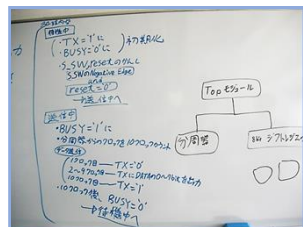 待機中
・TX='1'に
・BUSY='0'に
初期化
・S_SW, resetのかんし
S_SWのNegative Edge
and
reset='0'
→送信中へ
送信中
・BUSY='1'に
・分周器からのクロックを10クロックカウント
データ送信
1クロック目―TX='0'
2~9クロック目―TXにDATAの0~7bit目を出力
10クロック目―TX='1'
・10クロック後、BUSY='0'
→待機中へ
Topモジュール
分周器